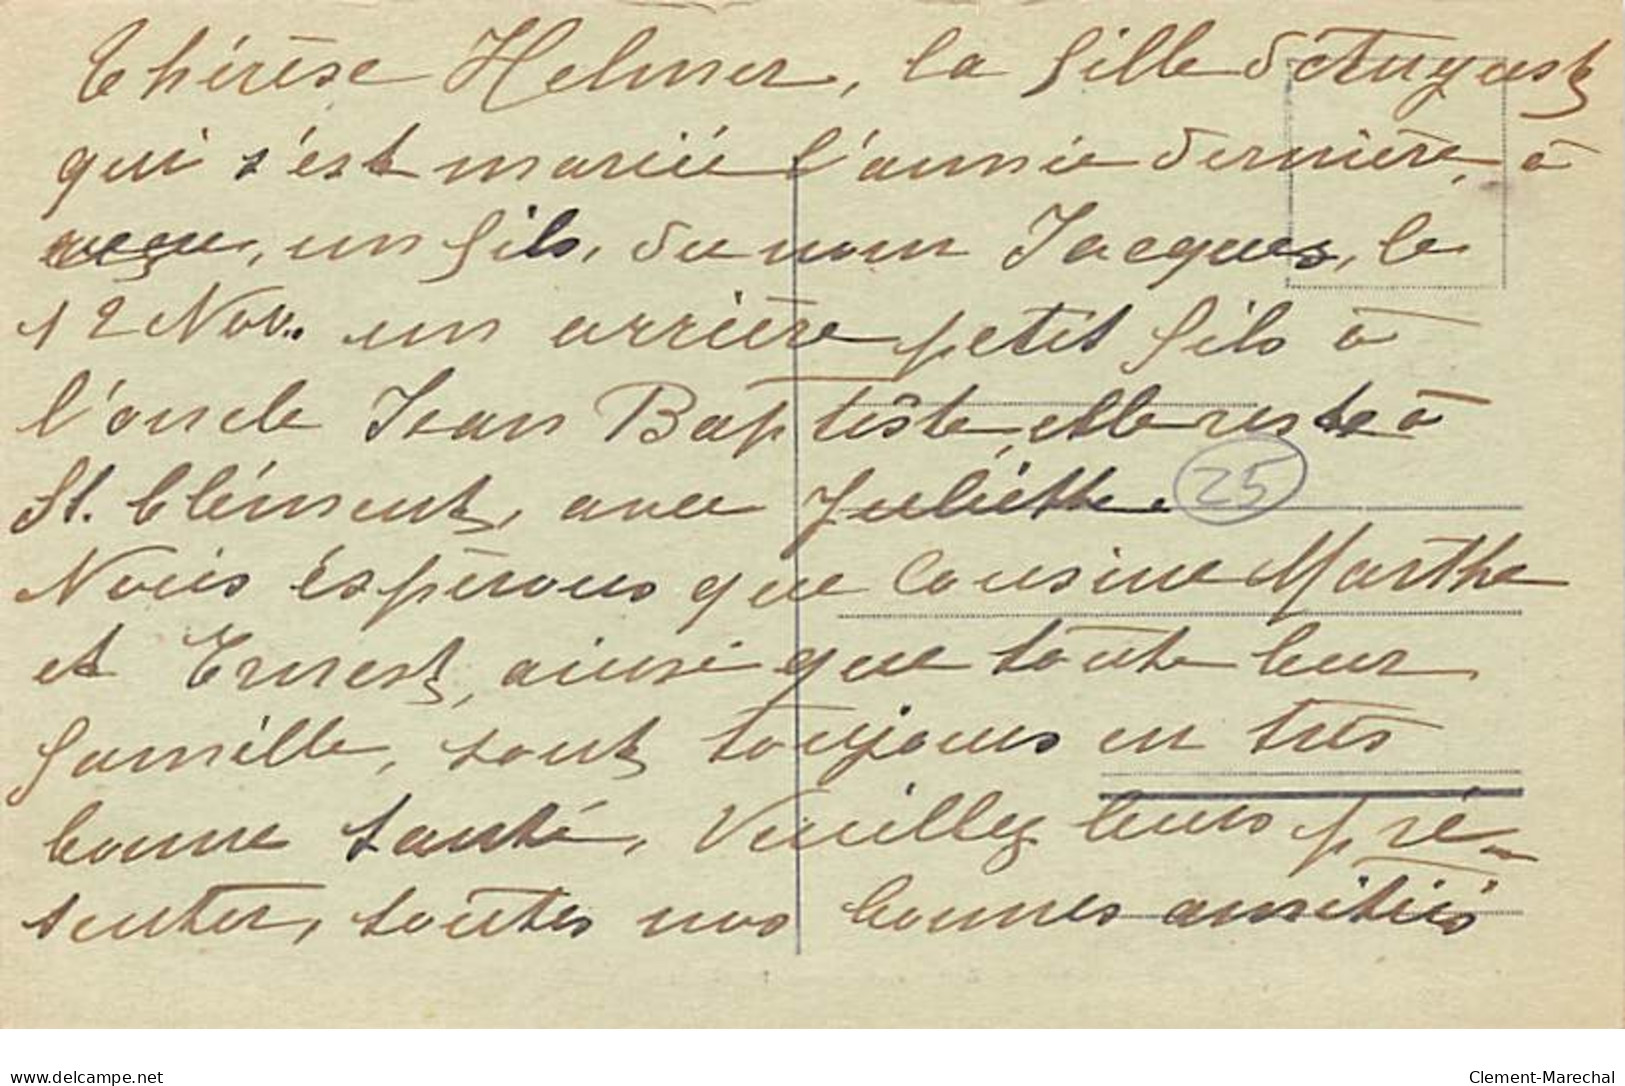 Thérèse Helmer, la fille d'Auguste
qui s'est mariée l'année dernière, à
reçu, un fils, du nom Jacques, le
12 Nov. un arrière petit fils à
l'oncle Jean Baptiste, elle reste à
St. Clément, avec Juliette.
25
Nous éspérons que Cousine Marthe
et Ernest, ainsi que toute leur
famille, sont toujours en très
bonne santé, Veuillez leurs pré-
senter, toutes nos bonnes amitiés
delcampe.net
Clement-Marechal